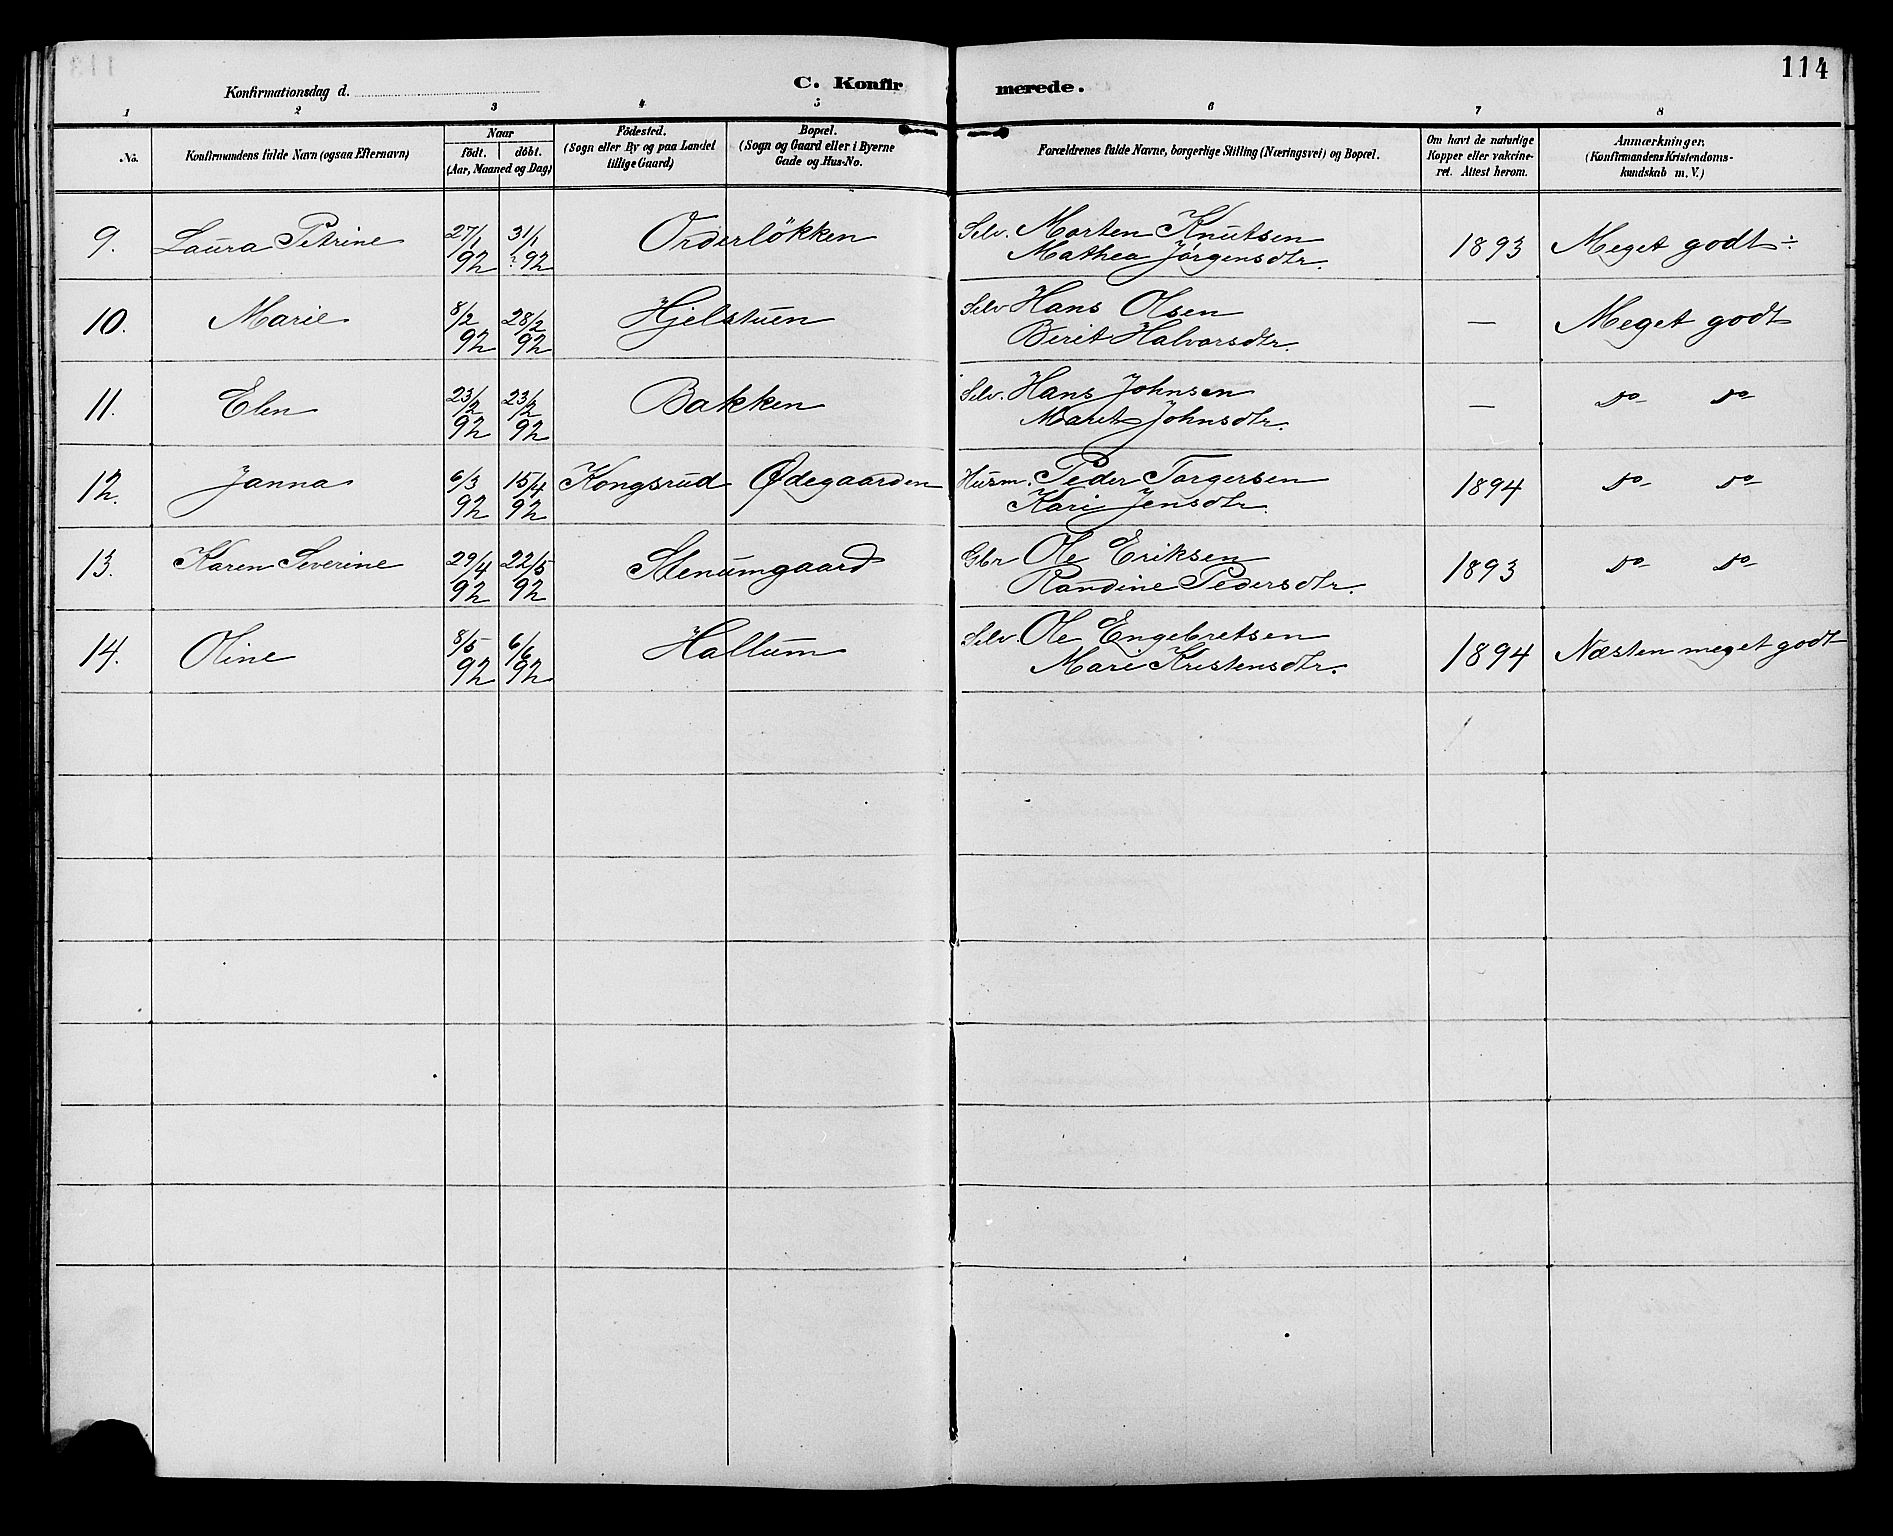 114
Konfirmationsdag d.
C. Konfir merede.
1 2 3 4 5 6 7 8
No. Konfirmandens fulde Navn (ogsaa Efternavn) Naar födt. döbt. (Aar, Maaned og Dag) Födested. (Sogn eller By og paa Landet tillige Gaard) Bopæl. (Sogn og Gaard eller i Byerne Gade og Hus-No. Forældrenes fulde Navne, borgerlige Stilling (Næringsvei) og Bopæl. Om havt de naturlige Kopper eller vakcineret. Attest herom. Anmærkninger. (Konfirmandens Kristendomskundskab m. V.)
9. Laura Petrine 27/1 92 31/1 ? 92 Orderlökken Selv. Morten Knutsen 1893 Meget godt ÷
Mathea Jørgensdtr.
10. Marie 8/2 92 28/2 92 Hjelstuen Selv Hans Olsen — Meget godt
Berit Halvorsdtr.
11. Elen 23/2 92 23/2 92 Bakken Selv. Hans Johnsen — do do
Marit Johnsdtr.
12. Janna 6/3 92 15/4 92 Kongsrud Ødegaarden Husm. Peder Torgersen 1894 do do
Kari Jensdtr.
13. Karen Severine 29/4 92 22/5 92 Stenumgaard Gbr Ole Eriksen 1893 do do
Randine Pedersdtr.
14. Oline 8/5 92 6/6 92 Hallum Selv. Ole Engebretsen 1894 Næsten meget godt
Mari Kristensdtr.